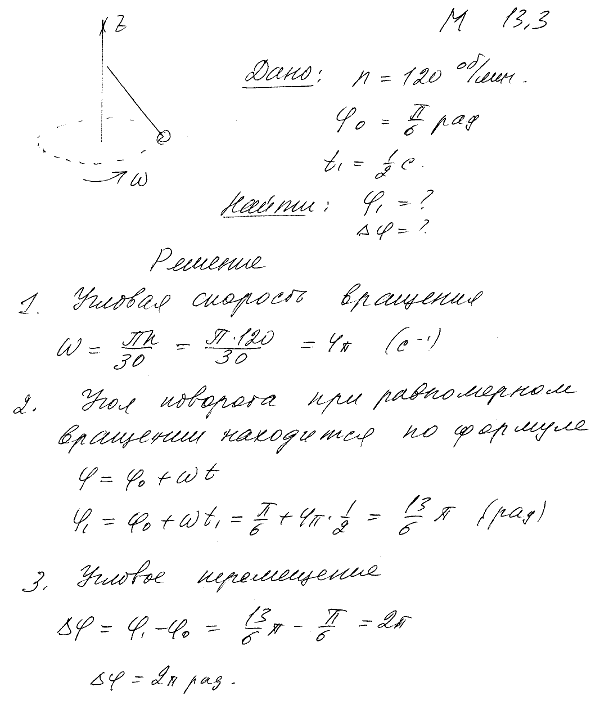 М 13.3
z
ω
Дано: n = 120 об/мин.
φ₀ = π/6 рад
t₁ = 1/2 с.
Найти: φ₁ = ?
Δφ = ?
Решение
1. Угловая скорость вращения
ω = πn/30 = π·120/30 = 4π (с⁻¹)
2. Угол поворота при равномерном
вращении находится по формуле
φ = φ₀ + ωt
φ₁ = φ₀ + ωt₁ = π/6 + 4π·1/2 = 13/6 π (рад)
3. Угловое перемещение
Δφ = φ₁ - φ₀ = 13/6 π - π/6 = 2π
Δφ = 2π рад.